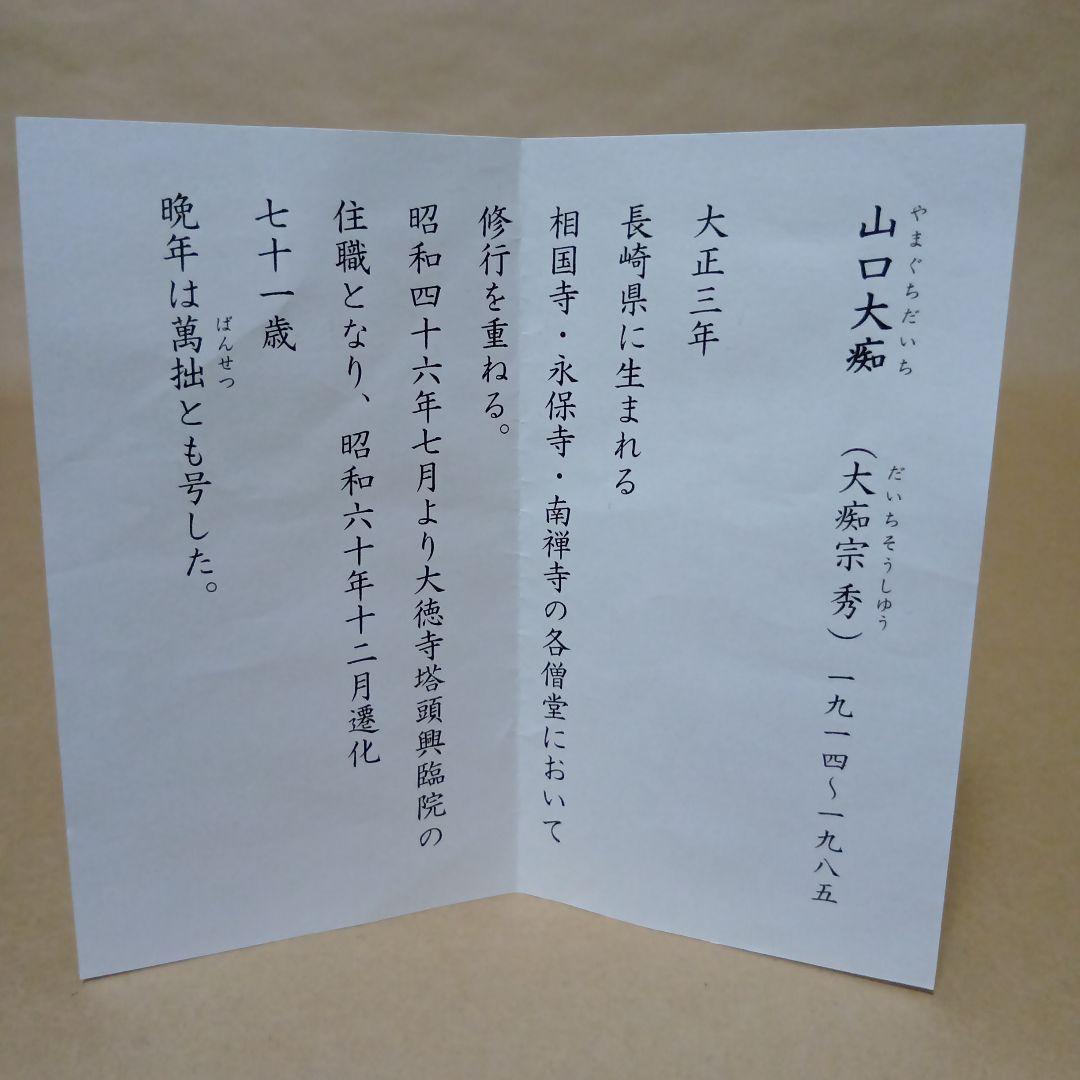 やまぐちだいち だいちそうしゆう
山口大痴 （大痴宗秀）一九一四〜一九八五
大正三年
長崎県に生まれる
相国寺・永保寺・南禅寺の各僧堂において
修行を重ねる。
昭和四十六年七月より大徳寺塔頭興臨院の
住職となり、昭和六十年十二月遷化
七十一歳
ばんせつ
晩年は萬拙とも号した。